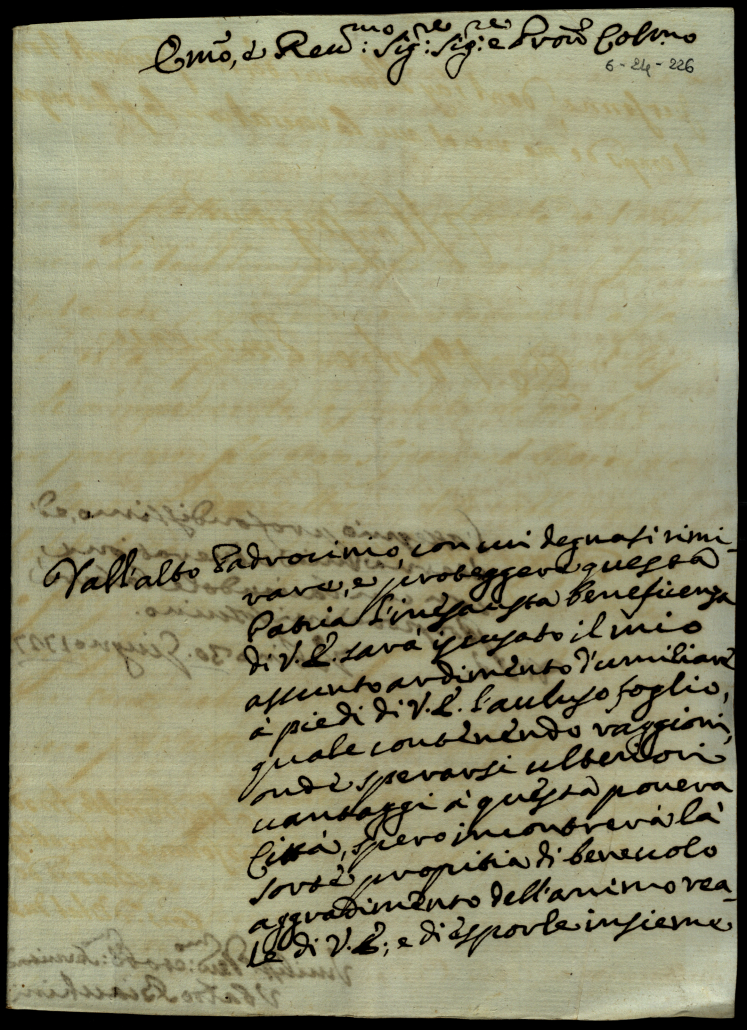 Emo, e Reu:mo Sig:re Sig:re e Prone Colmo
6-24-226
Dall'alto Padrocinio, con cui degnasi rimi-
rare, e proteggere questa
Patria l'inesausta beneficenza
di V.E. sarà scusato il mio
assunto ardimento d'umiliare
à piedi di V.E. l'acluso foglio,
quale contenendo raggioni,
onde sperarsi ulteriori
vantaggi à questa povera
Città, spero incontrerà la
sorte propitia di beneuolo
aggradimento dell'animo rea-
le di V.E.; e di esporle insieme